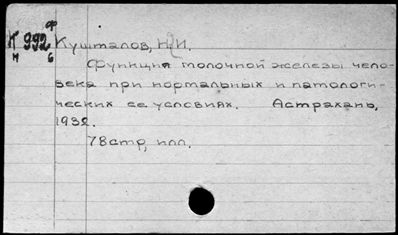 Ф
К 992 Кушталов, Н.И.
н б
Функция молочной железы чело-
века при нормальных и патологи-
ческих ее условиях. Астрахань,
1932.
78стр, илл.